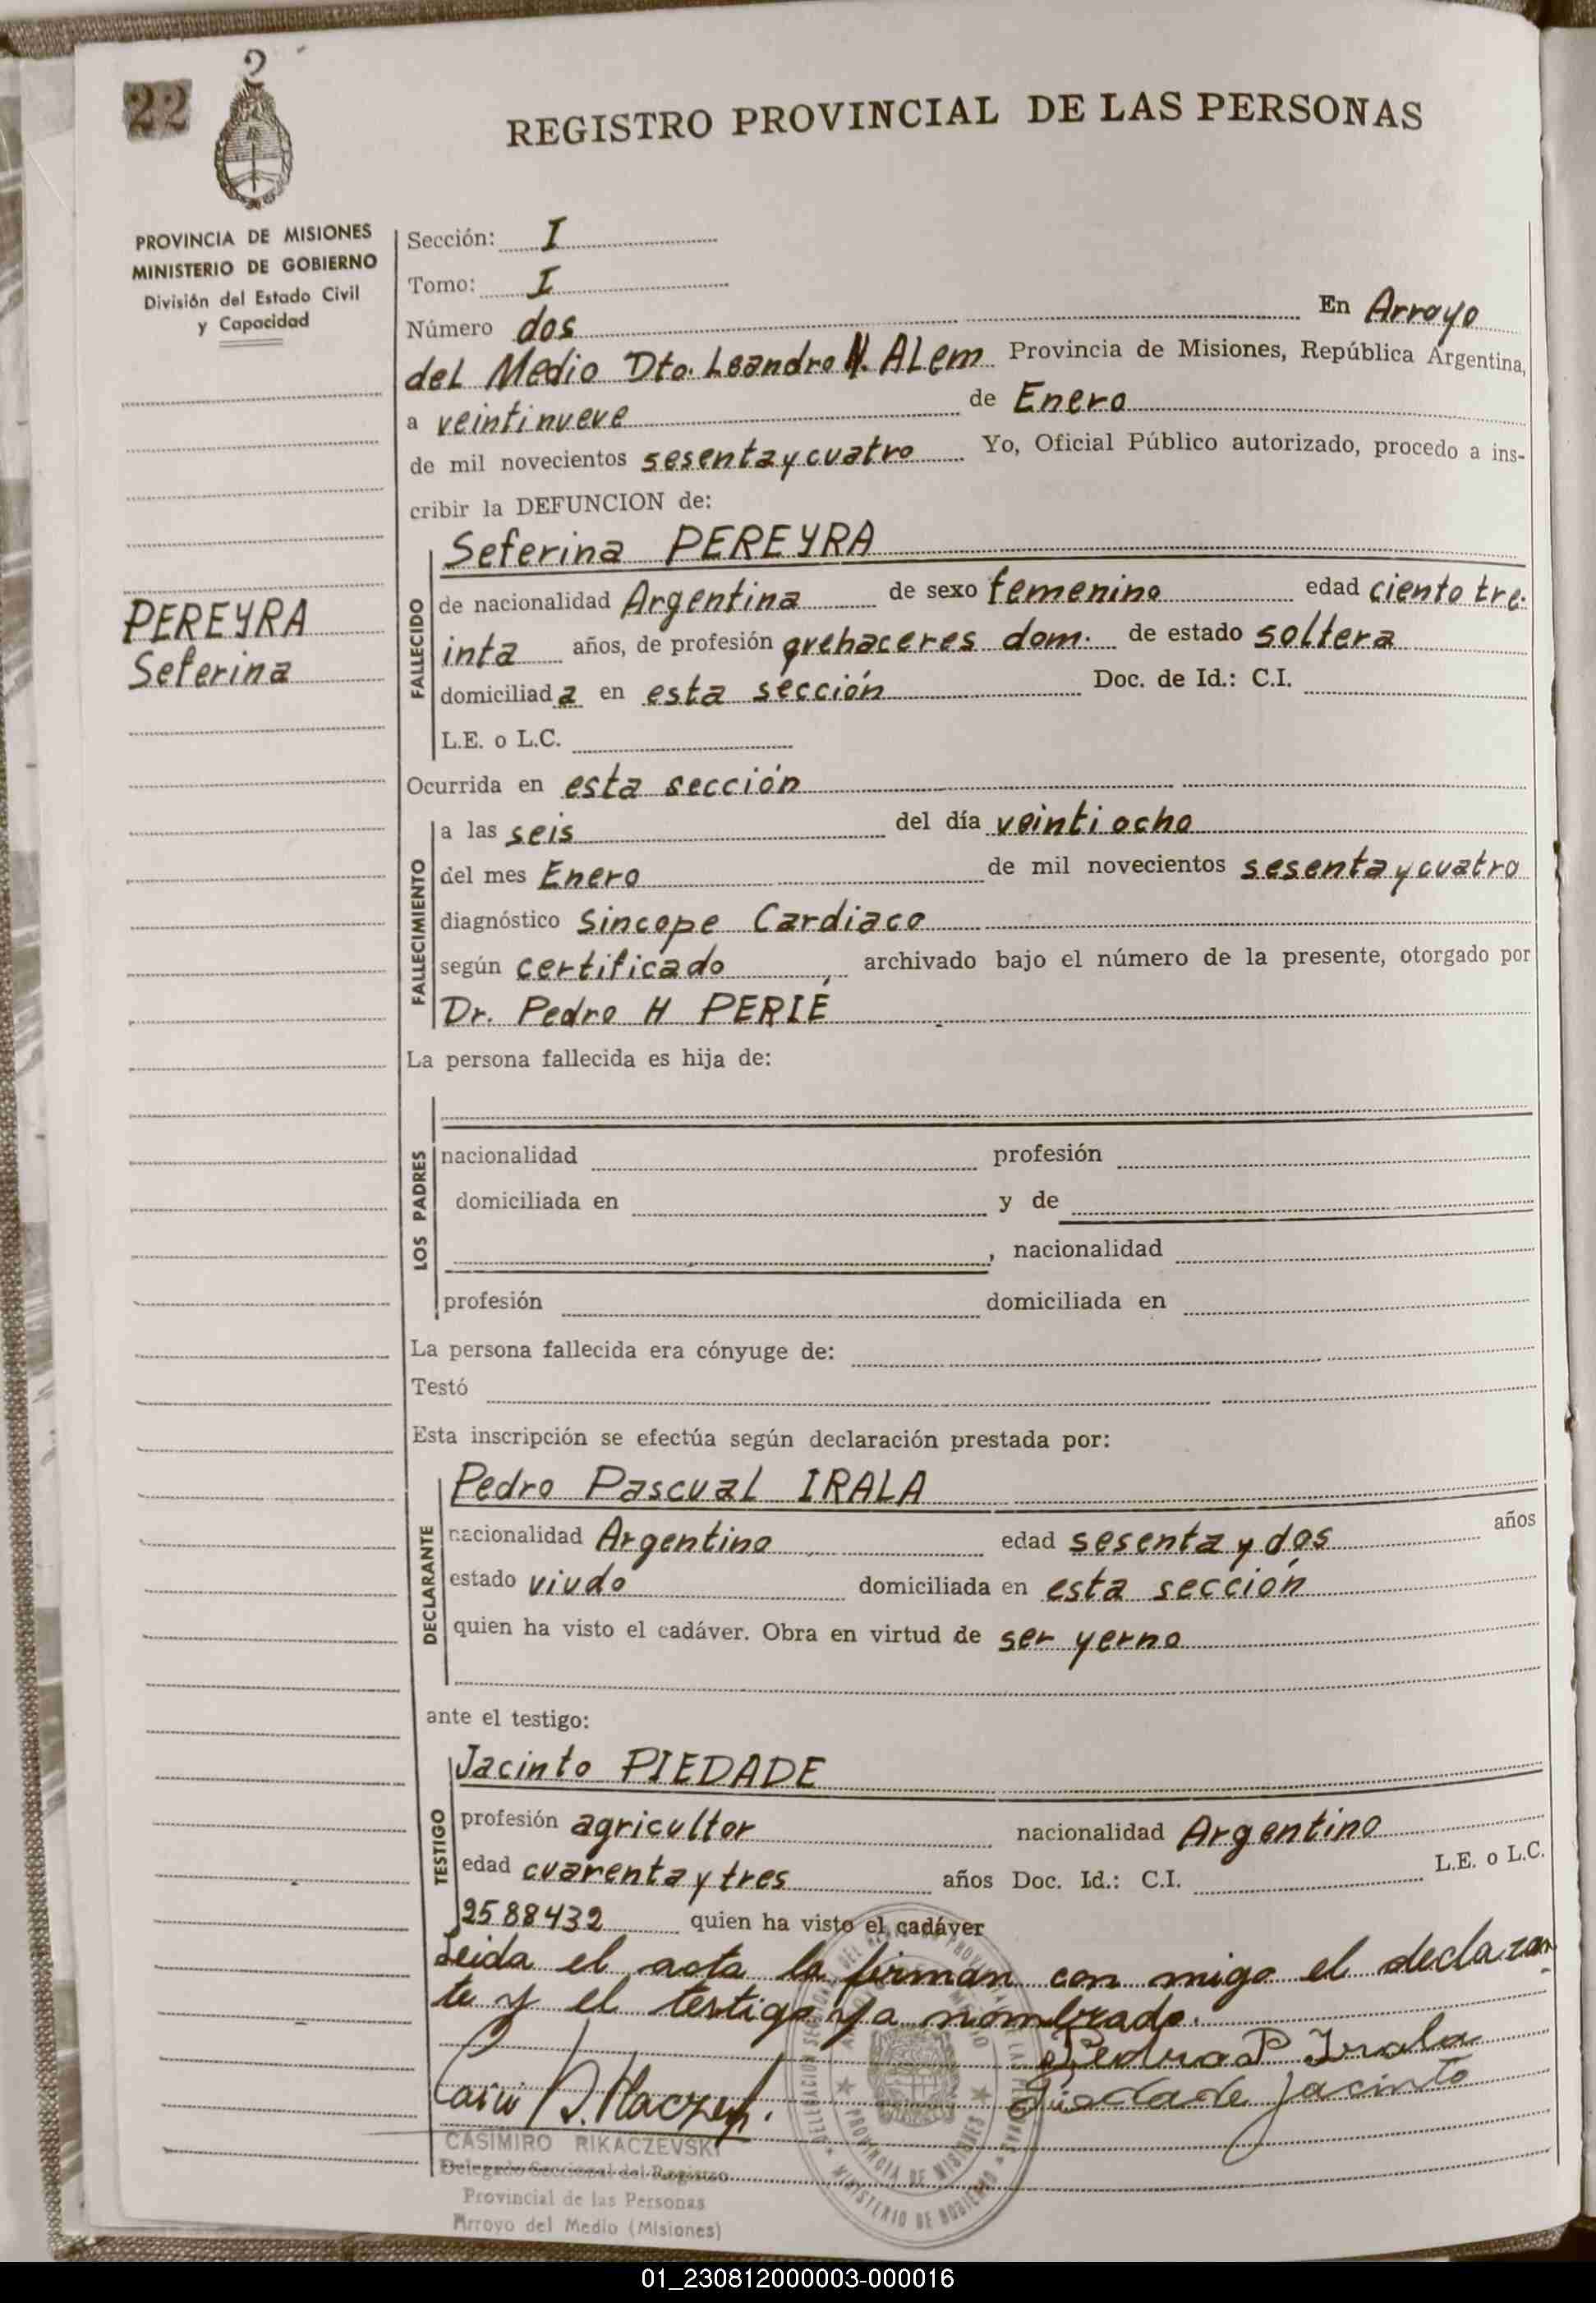 22
2
REGISTRO PROVINCIAL DE LAS PERSONAS
PROVINCIA DE MISIONES
MINISTERIO DE GOBIERNO
División del Estado Civil
y Capacidad
Sección: I
Tomo: I
Número dos En Arroyo
del Medio Dto. Leandro N. ALem Provincia de Misiones, República Argentina,
a veintinueve de Enero
de mil novecientos sesenta y cuatro Yo, Oficial Público autorizado, procedo a ins-
cribir la DEFUNCION de:
PEREYRA
Seferina
FALLECIDO
Seferina PEREYRA
de nacionalidad Argentina de sexo femenino edad ciento tre-
inta años, de profesión qrehaceres dom. de estado soltera
domiciliada en esta sección Doc. de Id.: C.I.
L.E. o L.C.
Ocurrida en esta sección
FALLECIMIENTO
a las seis del día veintiocho
del mes Enero de mil novecientos sesenta y cuatro
diagnóstico Sincope Cardiaco
según certificado, archivado bajo el número de la presente, otorgado por
Dr. Pedro H PERIÉ
La persona fallecida es hija de:
LOS PADRES
nacionalidad profesión
domiciliada en y de
, nacionalidad
profesión domiciliada en
La persona fallecida era cónyuge de:
Testó
Esta inscripción se efectúa según declaración prestada por:
DECLARANTE
Pedro Pascual IRALA
nacionalidad Argentino edad sesenta y dos años
estado viudo domiciliada en esta sección
quien ha visto el cadáver. Obra en virtud de ser yerno
ante el testigo:
TESTIGO
Jacinto PIEDADE
profesión agricultor nacionalidad Argentino
edad cuarenta y tres años Doc. Id.: C.I. L.E. o L.C.
2588432 quien ha visto el cadáver
Leida el acta la firman con migo el declaran
te y el testigo ya nombrado.
Pedro P Irala
Piedade Jacinto
CASIMIRO RIKACZEVSKI
Delegado Seccional del Registro
Provincial de las Personas
Arroyo del Medio (Misiones)
PROVINCIA DE MISIONES
MINISTERIO DE GOBIERNO
01_230812000003-000016